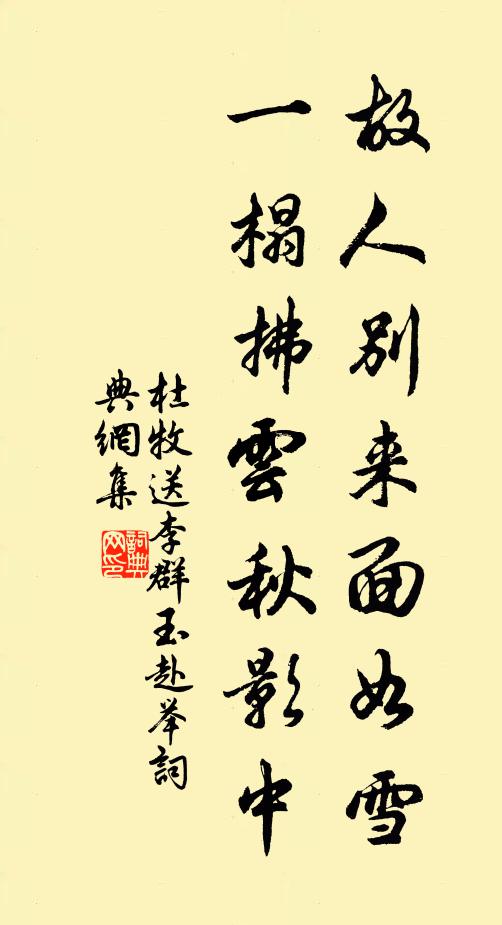 故人别来面如雪
一榻拂雲秋影中
杜牧送李群玉赴举詞
典網集
詞典网印